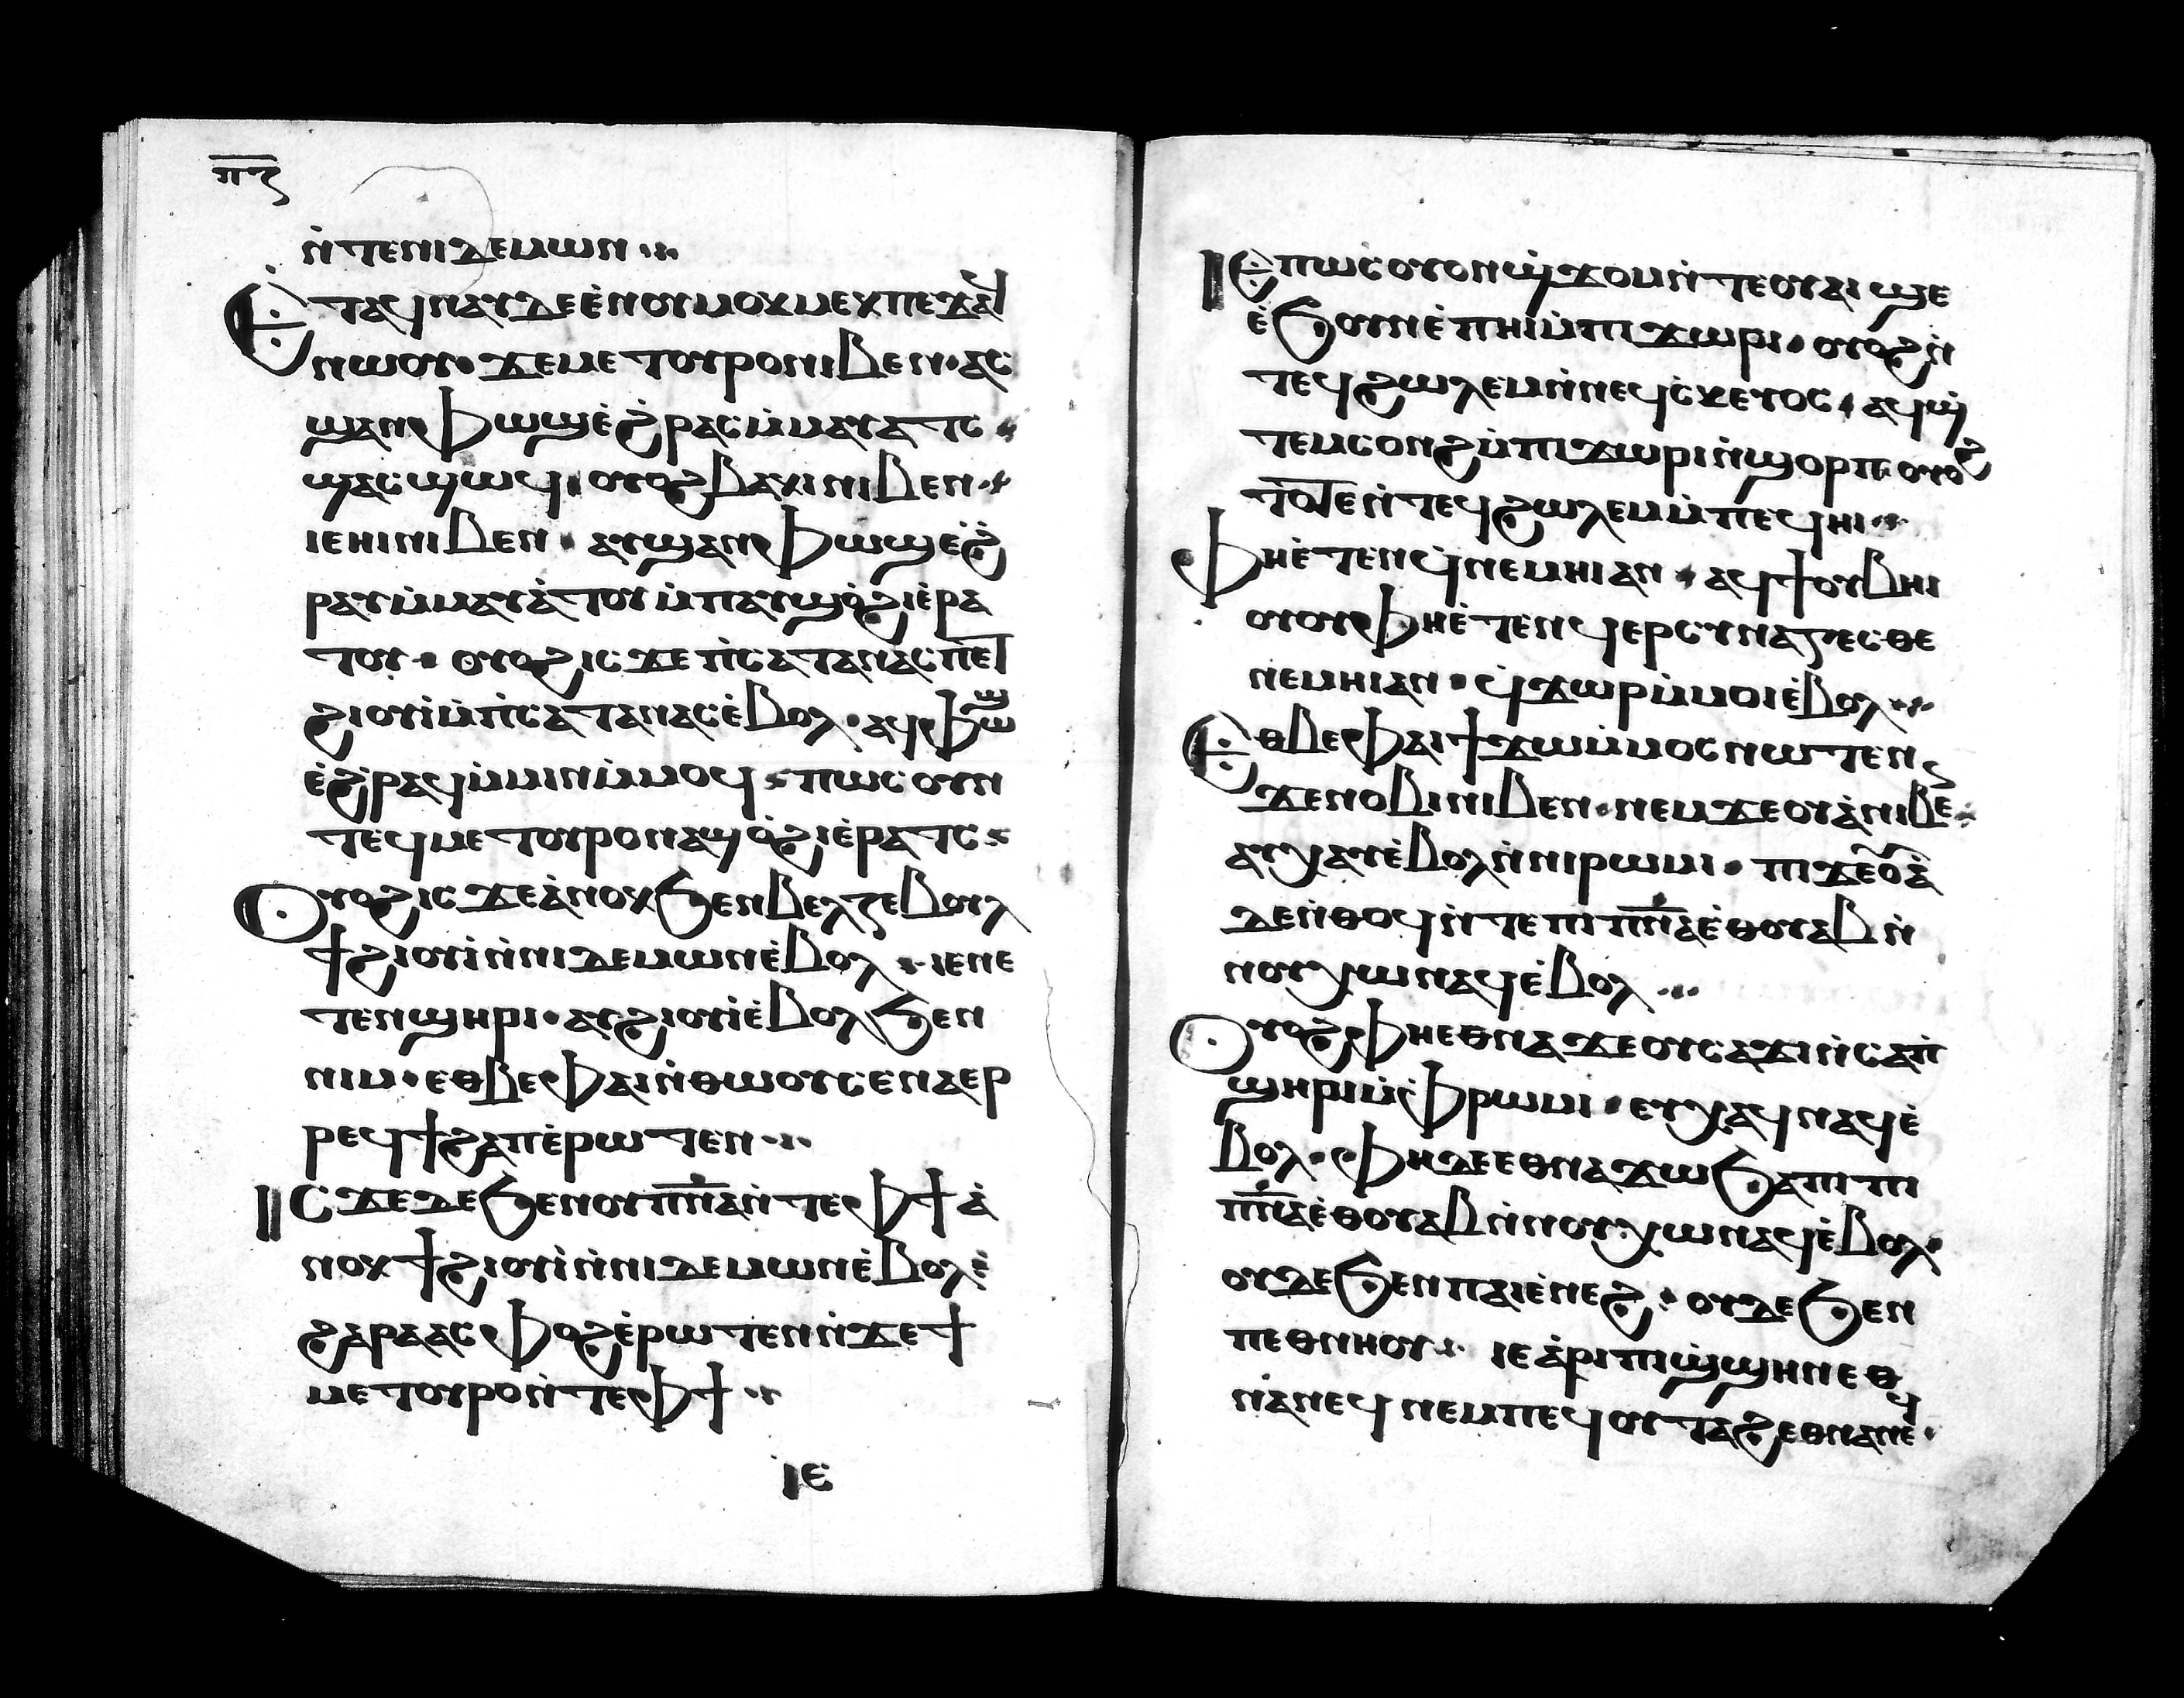 ⲡⲍ
ⲛ̀ⲧⲉⲛⲓⲇⲉⲙⲱⲛ
Ⲉ̀ⲧⲁϥⲛⲁⲩⲇⲉⲉ̀ⲛⲟⲩⲙⲟⲕⲙⲉⲕⲡⲉϫⲁϥ
ⲛⲱⲟⲩ· ϫⲉⲙⲉⲧⲟⲩⲣⲟⲛⲓⲃⲉⲛ· ⲁⲥ
ϣⲁⲛⲫⲱϣⲉ̀ϩ̀ⲣⲁⲥⲙ̀ⲙⲁⲩⲁⲧⲥ
ϣⲁⲥϣⲱϥ· ⲟⲩⲟϩⲃⲁⲕⲓⲛⲓⲃⲉⲛ
ⲓⲉⲏⲓⲛⲓⲃⲉⲛ· ⲁⲩϣⲁⲛⲫⲱϣⲉ̀ϩ̀
ⲣⲁⲩⲙ̀ⲙⲁⲩⲁ̀ⲧⲟⲩⲙ̀ⲡⲁⲩϣⲟ̀ϩⲓⲉ̀ⲣⲁ
ⲧⲟⲩ· ⲟⲩⲟϩⲓⲥϫⲉⲡ̀ⲥⲁⲧⲁⲛⲁⲥⲡⲉⲧ
ϩⲓⲟⲩⲓ̀ⲙ̀ⲡ̀ⲥⲁⲧⲁⲛⲁⲥⲉ̀ⲃⲟⲗ· ⲁϥⲫⲱϣ
ⲉ̀ϩ̀ⲣⲁϥⲙ̀ⲙⲓⲛⲙ̀ⲙⲟϥ ⲡⲱⲥⲟⲩⲛ
ⲧⲉϥⲙⲉⲧⲟⲩⲣⲟⲛⲁϣⲟ̀ϩⲓⲉ̀ⲣⲁⲧⲥ
Ⲟⲩⲟϩⲓⲥϫⲉⲁ̀ⲛⲟⲕϧⲉⲛⲃⲉⲗⲍⲉⲃⲟⲩⲗ
ϯϩⲓⲟⲩⲓ̀ⲛ̀ⲛⲓⲇⲉⲙⲱⲛⲉ̀ⲃⲟⲗ· ⲓⲉⲛⲉ
ⲧⲉⲛϣⲏⲣⲓ· ⲁⲩϩⲓⲟⲩⲓ̀ⲉ̀ⲃⲟⲗϧⲉⲛ
ⲛⲓⲙ· ⲉⲑⲃⲉⲫⲁⲓⲛ̀ⲑⲱⲟⲩⲥⲉⲛⲁⲉⲣ
ⲣⲉϥϯϩⲁⲡⲉ̀ⲣⲱⲧⲉⲛ
ⲒⲤϫⲉⲇⲉϧⲉⲛⲟⲩⲡ̅ⲛ̅ⲁ̅ⲛ̀ⲧⲉⲫϯⲁ̀
ⲛⲟⲕϯϩⲓⲟⲩⲓ̀ⲛ̀ⲛⲓⲇⲉⲙⲱⲛⲉ̀ⲃⲟⲗ
ϩⲁⲣⲁⲁⲥⲫⲟϩⲉ̀ⲣⲱⲧⲉⲛⲛ̀ϫⲉϯ
ⲙⲉⲧⲟⲩⲣⲟⲛ̀ⲧⲉⲫϯ
ⲓⲉ
ⲒⲈⲡⲱⲥⲟⲩⲟⲛϣ̀ϫⲟⲙⲛ̀ⲧⲉⲟⲩⲁⲓϣⲉ
ⲉ̀ϧⲟⲩⲛⲉ̀ⲡⲏⲓⲙ̀ⲡⲓϫⲱⲣⲓ· ⲟⲩⲟϩⲛ̀
ⲧⲉϥϩⲱⲗⲉⲙⲛ̀ⲛⲉϥⲥ̀ⲕⲉⲩⲟⲥ· ⲁϥϣ̀
ⲧⲉⲙⲥⲟⲛϩⲙ̀ⲡⲓϫⲱⲣⲓⲛ̀ϣⲟⲣⲡ· ⲟⲩⲟϩ
ⲧⲟⲧⲉⲛ̀ⲧⲉϥϩⲱⲗⲉⲙⲙ̀ⲡⲉϥⲏⲓ
Ⲫⲏⲉ̀ⲧⲉⲛϥ̀ⲛⲉⲙⲏⲓⲁⲛ· ⲁϥϯⲟⲩⲃⲏⲓ
ⲟⲩⲟϩⲫⲏⲉ̀ⲧⲉⲛϥⲉⲣⲥⲩⲛⲁⲍⲉⲥⲑⲉ
ⲛⲉⲙⲏⲓⲁⲛ· ϥϫⲱⲣⲙ̀ⲙⲟⲓⲉ̀ⲃⲟⲗ
Ⲉⲑⲃⲉⲫⲁⲓϯϫⲱⲙ̀ⲙⲟⲥⲛⲱⲧⲉⲛ
ϫⲉⲛⲟⲃⲓⲛⲓⲃⲉⲛ· ⲛⲉⲙϫⲉⲟⲩⲁ̀ⲛⲓⲃⲉ
ⲁⲩⲭⲁⲩⲉ̀ⲃⲟⲗⲛ̀ⲛⲓⲣⲱⲙⲓ· ⲡⲓϫⲉⲟⲩⲁ̀
ⲇⲉⲛ̀ⲑⲟϥⲛ̀ⲧⲉⲡⲓⲡ̅ⲛ̅ⲁ̅ⲉ̀ⲑⲟⲩⲁⲃⲛ̀
ⲛⲟⲩⲭⲱⲛⲁϥⲉ̀ⲃⲟⲗ
Ⲟⲩⲟϩⲫⲏⲉⲑⲛⲁϫⲉⲟⲩⲥⲁϫⲓⲛ̀ⲥⲁⲡ̀
ϣⲏⲣⲓⲙ̀ⲫⲣⲱⲙⲓ· ⲉⲩⲭⲁϥⲛⲁϥⲉ̀
ⲃⲟⲗ· ⲫⲏⲇⲉⲉⲑⲛⲁϫⲱϧⲁⲡⲓⲡⲓ
ⲡ̅ⲛ̅ⲁ̅ⲉ̀ⲑⲟⲩⲁⲃⲛ̀ⲛⲟⲩⲭⲱⲛⲁϥⲉ̀ⲃⲟⲗ·
ⲟⲩⲇⲉϧⲉⲛⲡⲁⲓⲉ̀ⲛⲉϩ· ⲟⲩⲇⲉϧⲉⲛ
ⲡⲉⲑⲛⲏⲟⲩ· ⲓⲉⲁ̀ⲣⲓⲡⲓϣ̀ϣⲏⲛⲉⲑ
ⲛⲁⲛⲉϥⲛⲉⲙⲡⲉϥⲟⲩⲧⲁϩⲉⲑⲛⲁⲛⲉϥ·